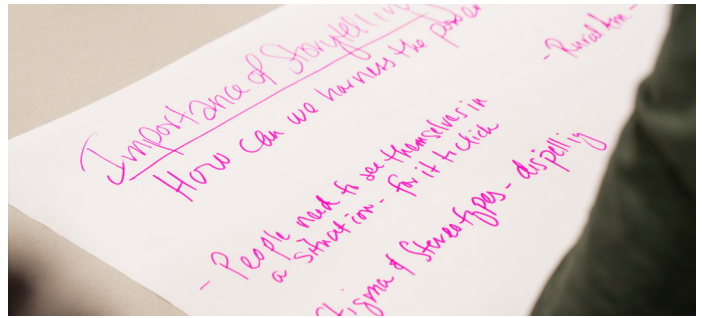 Importance of Storytelling
How can we harness the power
- Rural
- People need to see themselves in
a situation - for it to click
Stigma & Stereotypes - dispelling